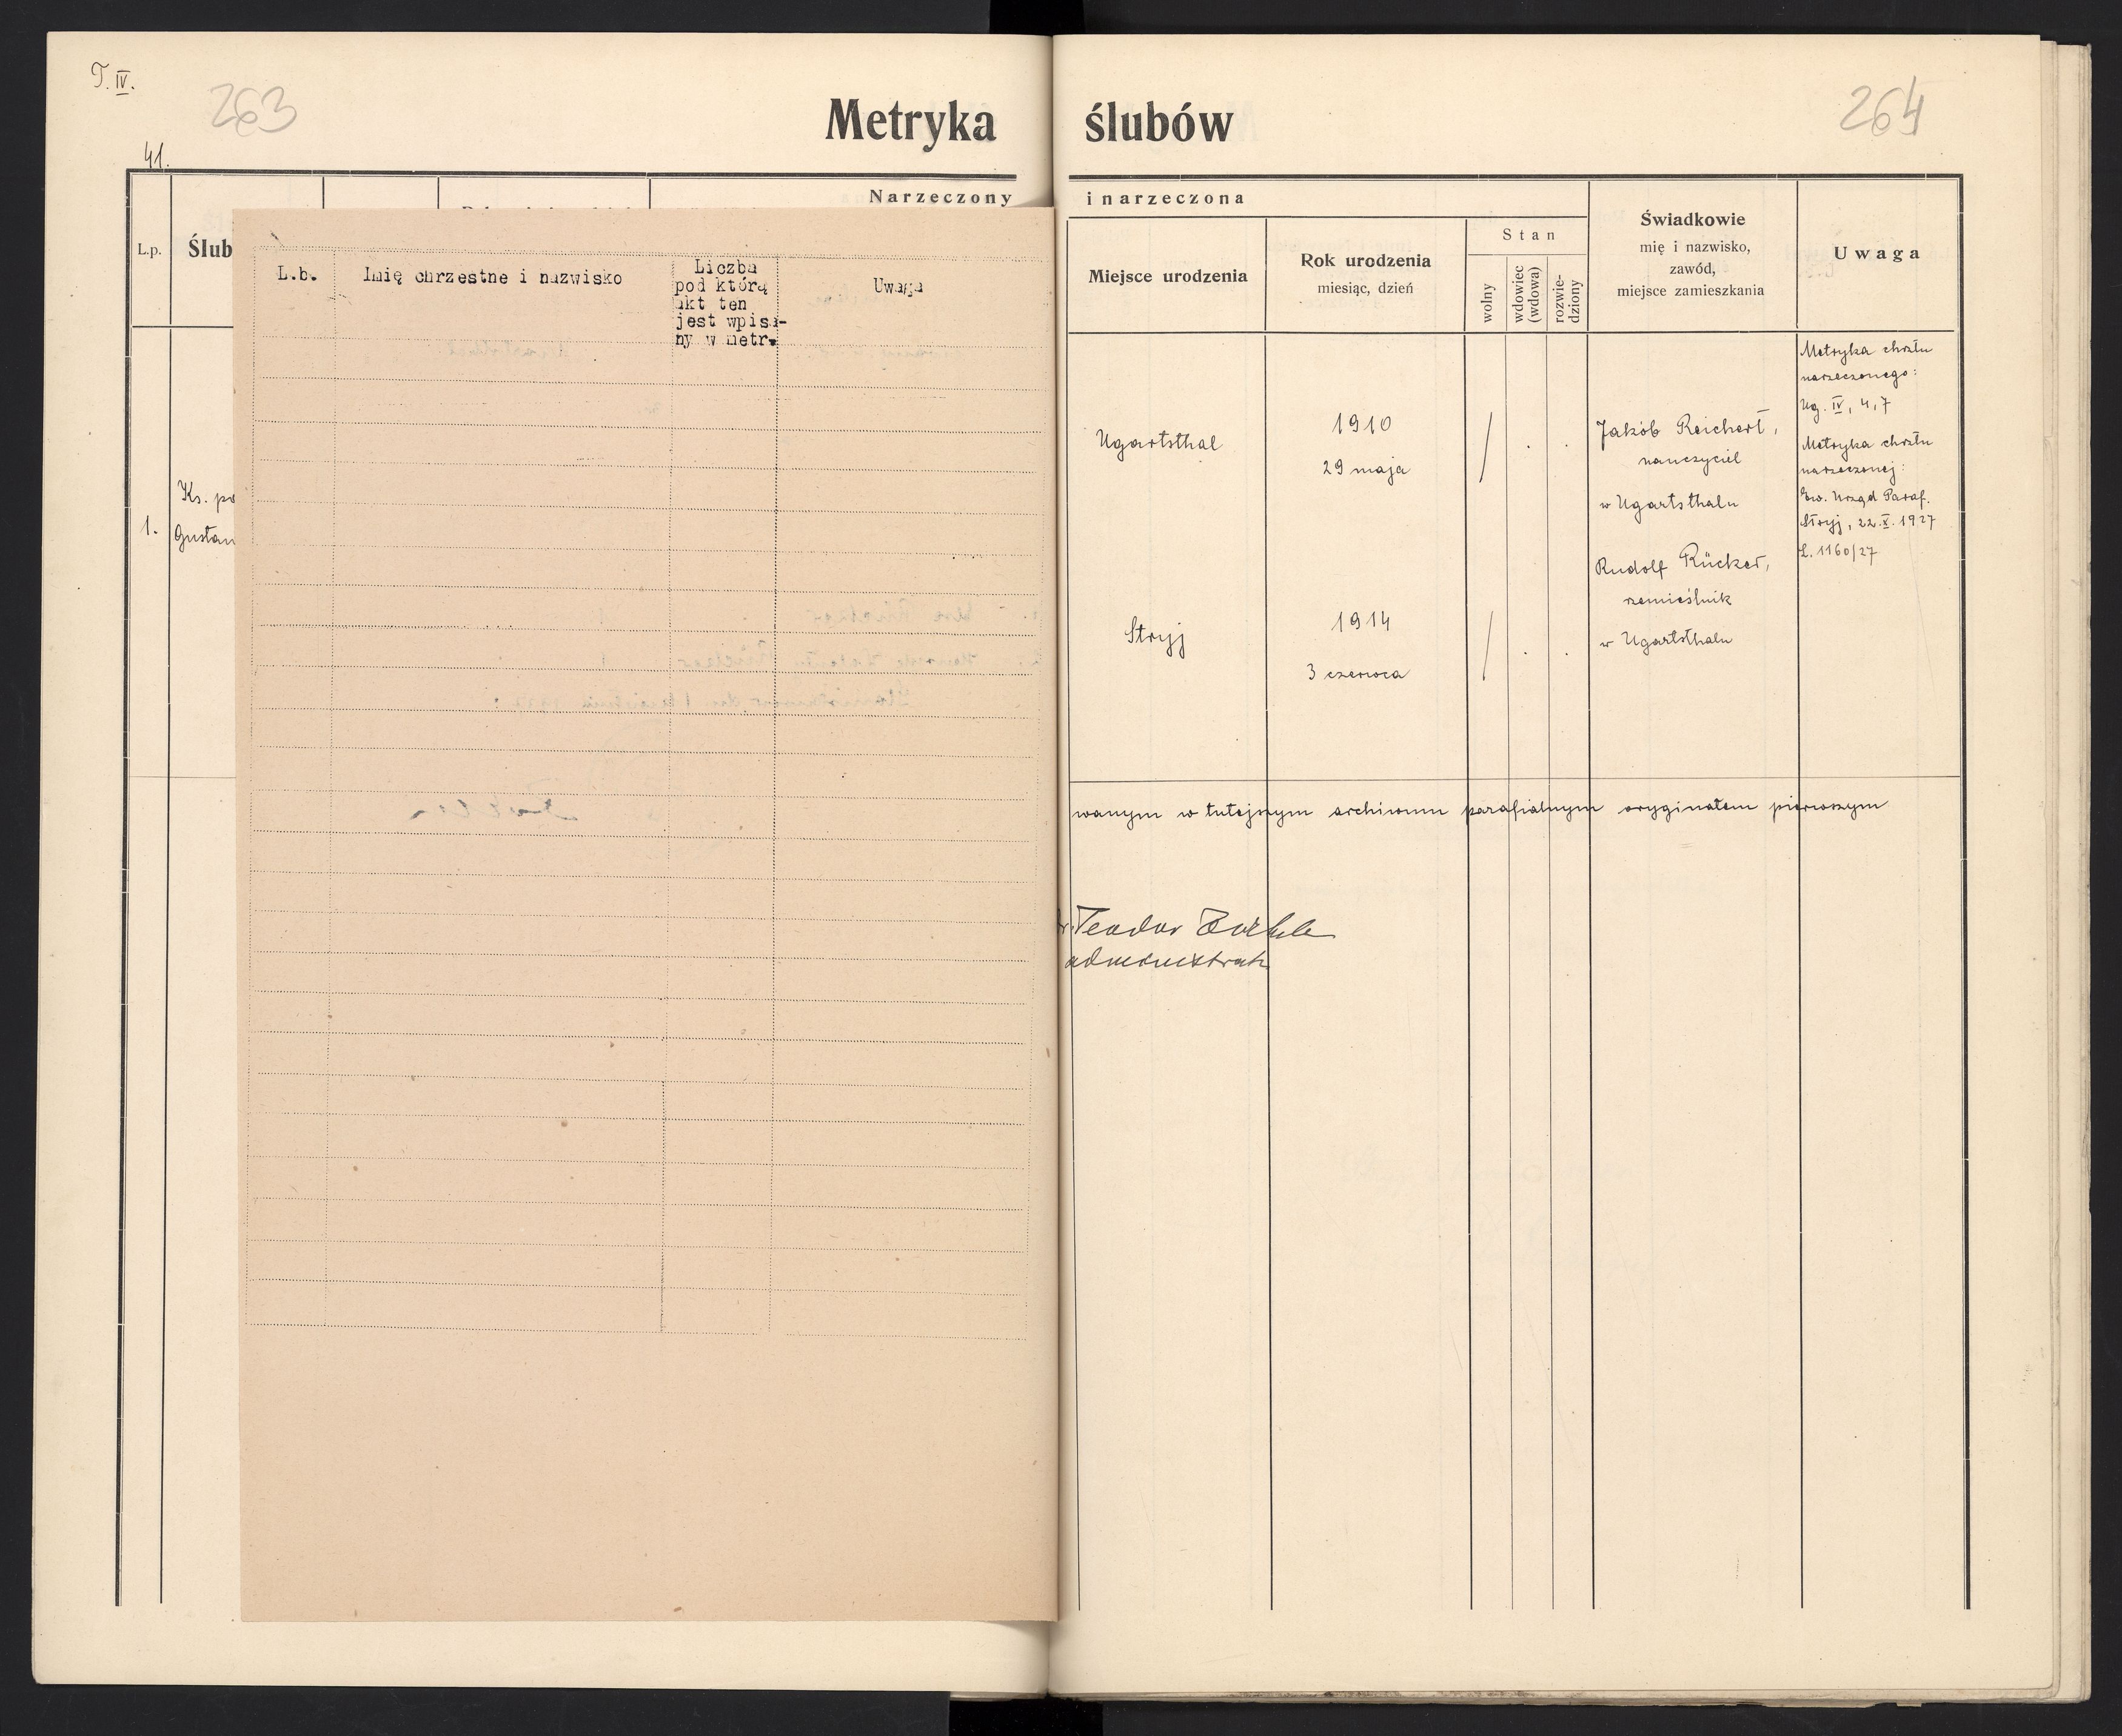 T. IV.
263
264
Metryka ślubów
41.
Narzeczony
i narzeczona
L.p.
Ślub
L.b.
Imię chrzestne i nazwisko
Liczba
pod którą
akt ten
jest wpisa-
ny w metr.
Uwaga
Miejsce urodzenia
Rok urodzenia
miesiąc, dzień
Stan
wolny
wdowiec
(wdowa)
rozwie-
dziony
Świadkowie
mię i nazwisko,
zawód,
miejsce zamieszkania
Uwaga
1.
Ks.
Gustaw
Ugartsthal
1910
29 maja
Jakób Reichert,
nauczyciel
w Ugartsthalu
Rudolf Rücker,
rzemieślnik
w Ugartsthalu
Metryka chrztu
narzeczonego:
Ug. IV, 4, 7
Metryka chrztu
narzeczonej:
Ew. Urząd Paraf.
Stryj, 22.X.1927
L. 1160/27
Stryj
1914
3 czerwca
wanym w tutejszym archiwum parafialnym oryginałem pierwszym
Teodor Zöckler
administrator